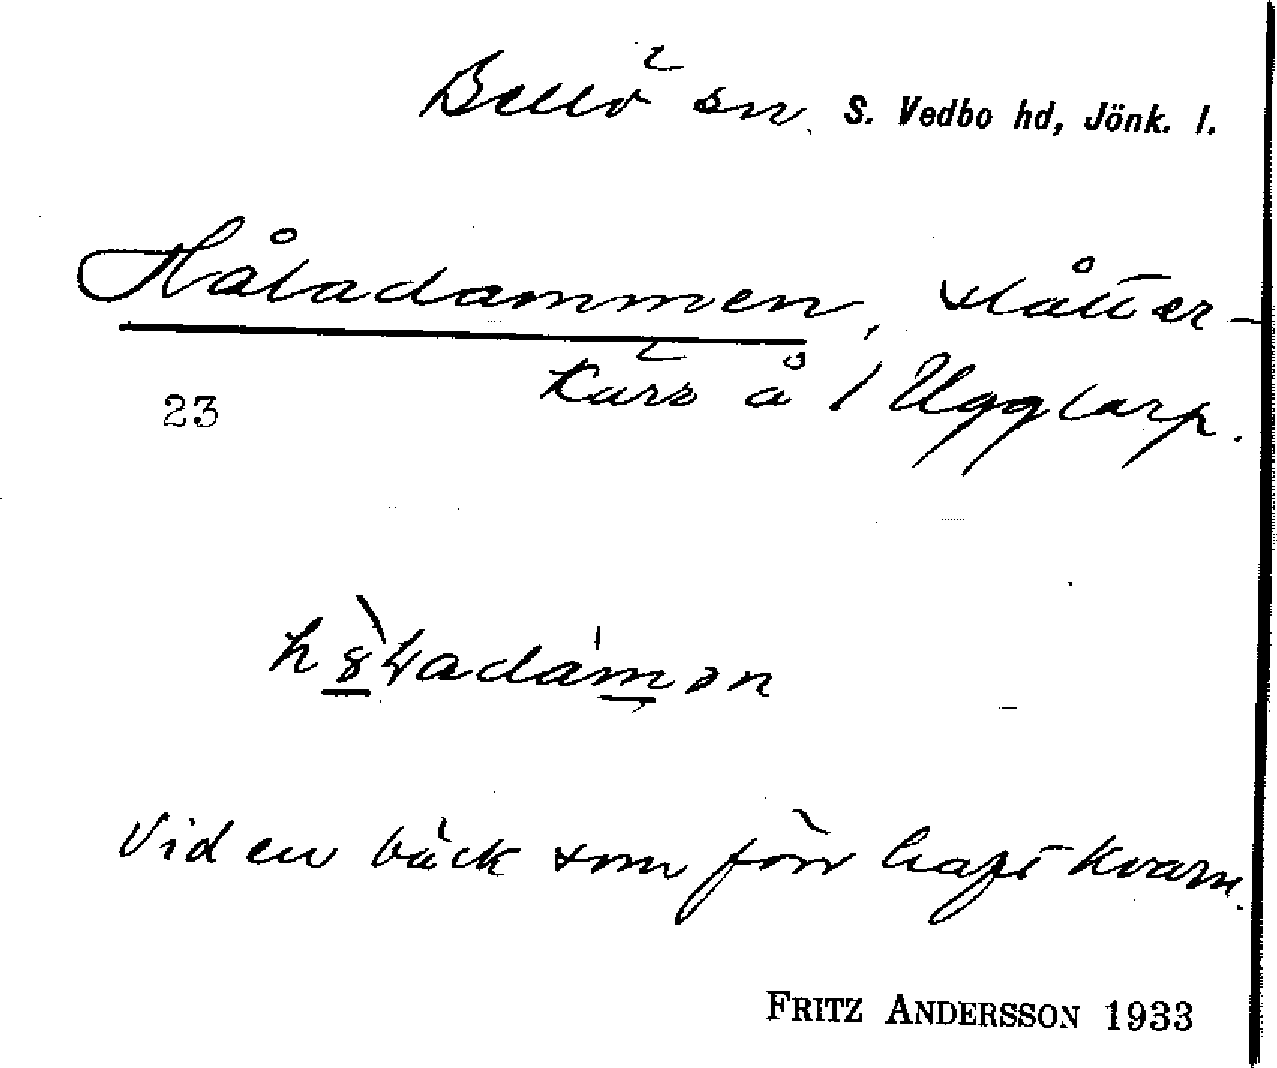 Bellö sn. S. Vedbo hd, Jönk. l.
Håladammen, slåtter-
kärr å 1 Ugglarp.
23
Vid en bäck som förr haft kvarn.
FRITZ ANDERSSON 1933